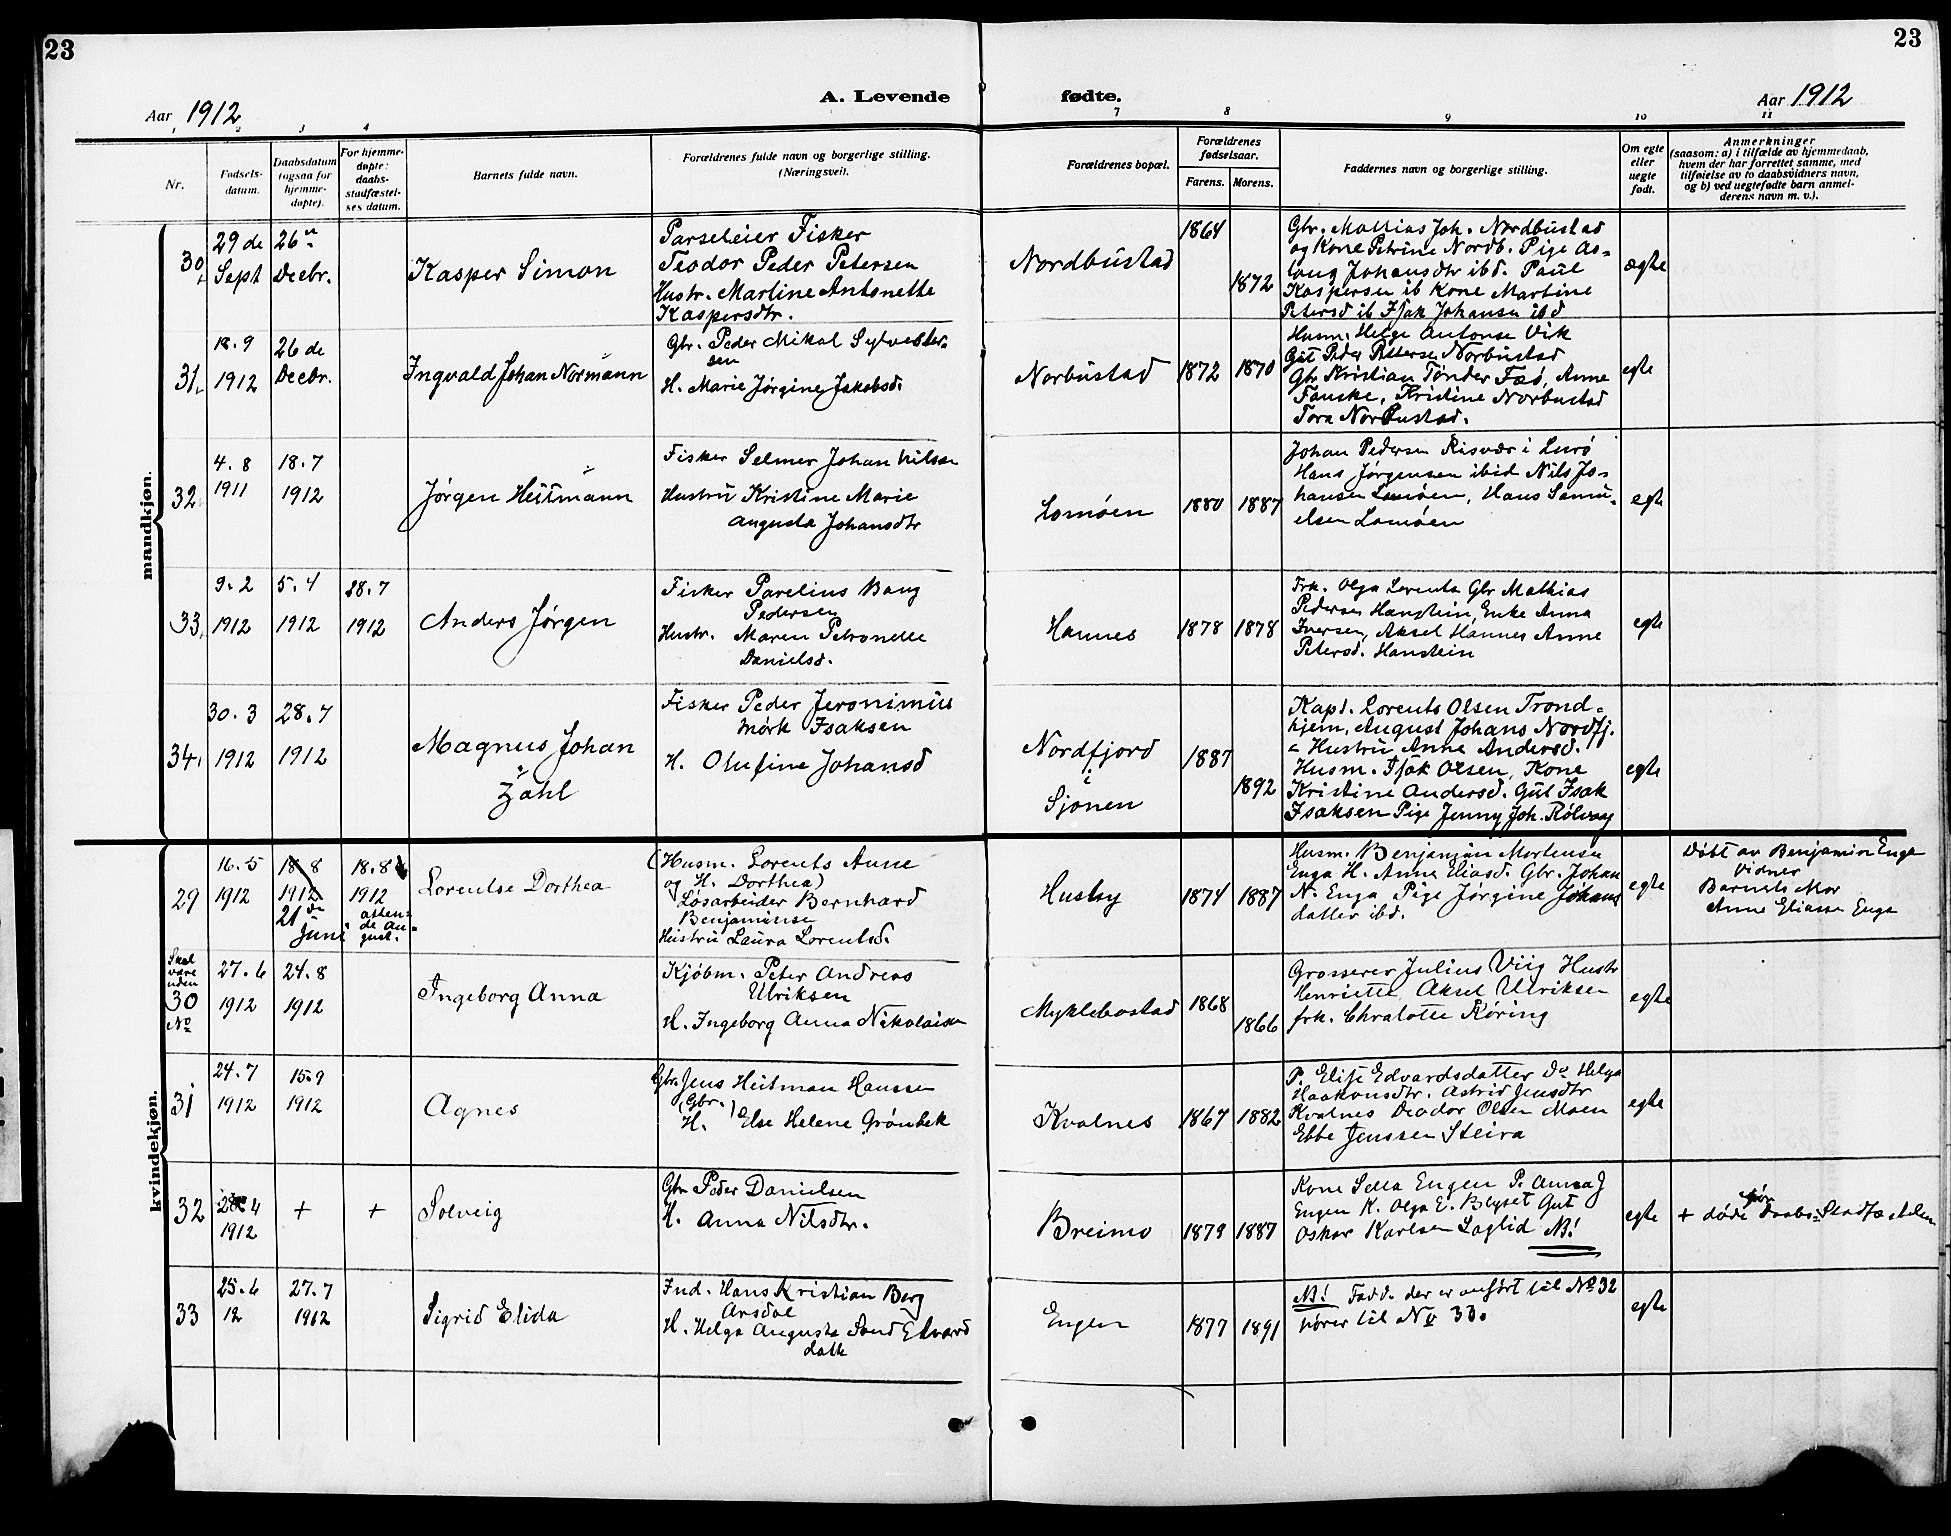 23
23
A. Levende
fødte.
Aar 1912
Aar 1912
1 2 3 4
7 8 9 10 11
Nr.
Fødsels-
datum.
Daabsdatum
(ogsaa for
hjemme-
døpte).
For hjemme-
døpte:
daabs-
stadfæstel-
ses datum.
Barnets fulde navn.
Forældrenes fulde navn og borgerlige stilling.
(Næringsvei).
Forældrenes bopæl.
Forældrenes
fødselsaar.
Farens. Morens.
Faddernes navn og borgerlige stilling.
Om egte
eller
uegte
født.
Anmerkninger
(saasom: a) i tilfælde av hjemmedaab,
hvem der har forrettet samme, med
tilføielse av to daabsvidners navn,
og b) ved uegtefødte barn anmel-
derens navn m. v.).
mandkjøn.
30
29 de
Sept
26
Decbr.
Kasper Simon
Parseleier Fisker
Teodor Peder Petersen
Hustr. Martine Antonette
Kaspersdtr.
Nordbustad
1864
1872
Gbr. Mathias Joh. Nordbustad
og Kone Petrine Nordb. Pige As-
laug Johansdtr ibd. Paul
Kaspersen ib Kone Martine
Petersd ib Isak Johansen ibd
ægte
31
18.9
1912
26 de
Decbr.
Ingvald Johan Normann
Gbr. Peder Mikal Sylvester-
sen
H. Marie Jørgine Jakobsd.
Norbustad
1872
1870
Husm. Helge Antonse Vik
Gut Peder Pettersen Norbustad
Gbr Kristian Tønder Fæø, Anne
Fauske, Kristine Norbustad
Tora Norbustad.
egte
32
4.8
1911
18.7
1912
Jørgen Heitmann
Fisker Selmer Johan Nilsen
Hustru Kristine Marie
Augusta Johansdtr
Lomøen
1880
1887
Johan Pedersen Risvær i Lurø
Hans Jørgensen ibid Nils Jo-
hansen Lomøen, Hans Samu-
elsen Lomøen
egte
33
9.2
1912
5.4
1912
28.7
1912
Anders Jørgen
Fisker Parelius Bang
Pedersen
Hustr. Maren Petronelle
Danielsd.
Hannes
1878
1878
Frk. Olga Lorents Gbr Mathias
Pedersen Hanstein, Enke Anna
Iversen, Aksel Hannes Anne
Petersd. Hanstein
egte
34
30.3
1912
28.7
1912
Magnus Johan
Zahl
Fisker Peder Jeronimus
Mørk Isaksen
H. Olufine Johansd
Nordfjord
i
Sjonen
1887
1892
Kapt. Lorents Olsen Trond-
hjem, August Johans Nordfj.
Hustru Anne Andersd.
Husm. Isak Olsen, Kone
Kristine Andersd. Gut Isak
Isaksen Pige Jenny Joh. Rølvaag
egte
kvindekjøn.
29
16.5
1912
18.8
1912
21 de
Juni
18.8
1912
atten-
de au-
gust.
Lorentse Dorthea
(Husm. Lorents Anne
og H. Dorthea)
Løsarbeider Bernhard
Benjaminse
Hustru Laura Lorentsd.
Husby
1874
1887
Husm. Benjamin Mortensen
Enga H. Anne Eliasd. Gbr. Johan
N. Enga Pige Jørgine Johans
datter ibd.
egte
Døbt av Benjamin Enga
Vidner
Barnets Mor
Anne Eliasen Enga
Skal
være
uden
30
No
27.6
1912
24.8
1912
Ingeborg Anna
Kjøbm. Peter Andreas
Ulriksen
H. Ingeborg Anna Nikolaisen
Myklebostad
1868
1866
Grosserer Julius Viig Hustr
Henriette Aksel Ulriksen
frk. Chralotte Røring
egte
31
24.7
1912
15.9
1912
Agnes
Gbr. Jens Heitman Hansen
(Gbr.)
H. Else Helene Grønbek
Kvalnes
1867
1882
P. Elise Edvardsdatter Do Helga
Haakonsdtr. Astrid Jensdtr
Kvalnes Teodor Olsen Moen
Ebbe Jenssen Steira
egte
32
28.4
1912
+
+
Solveig
Gbr Peder Danielsen
H. Anna Nilsdtr.
Breimo
1879
1887
Kone Sella Engen P. Anna J
Engen K. Olga E. Blyset Gut
Oskar Karlsen Laglid NB!
egte
+ døde før Daabs-Stadfæstelsen
33
25.6
12
27.7
1912
Sigrid Elida
Ind. Hans Kristian Berg
Arsdal
H. Helga Augusta Sand Edvard
datte
Engen
1877
1891
NB! Fadd. der er anført til No 32
hører til No 33.
egte